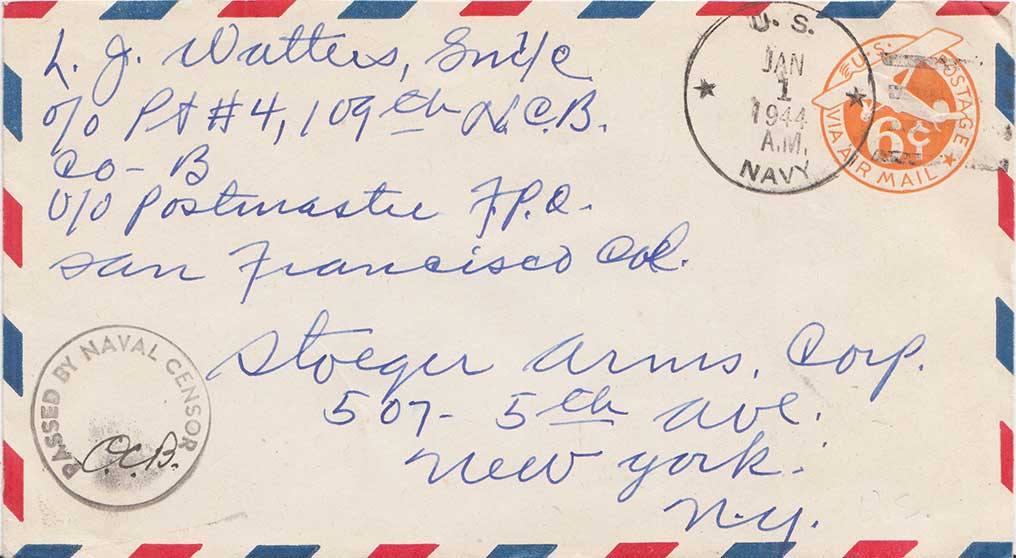 L. J. Watters, Sm1/c
c/o Plt #4, 109th N.C.B.
Co - B
c/o Postmaster F.P.O.
San Francisco Cal.
U. S.
JAN
1
1944
A.M.
NAVY
U.S. POSTAGE
6¢
VIA AIR MAIL
Stoeger Arms. Corp.
507 - 5th Ave.
New York.
N.Y.
PASSED BY NAVAL CENSOR
C.C.B.